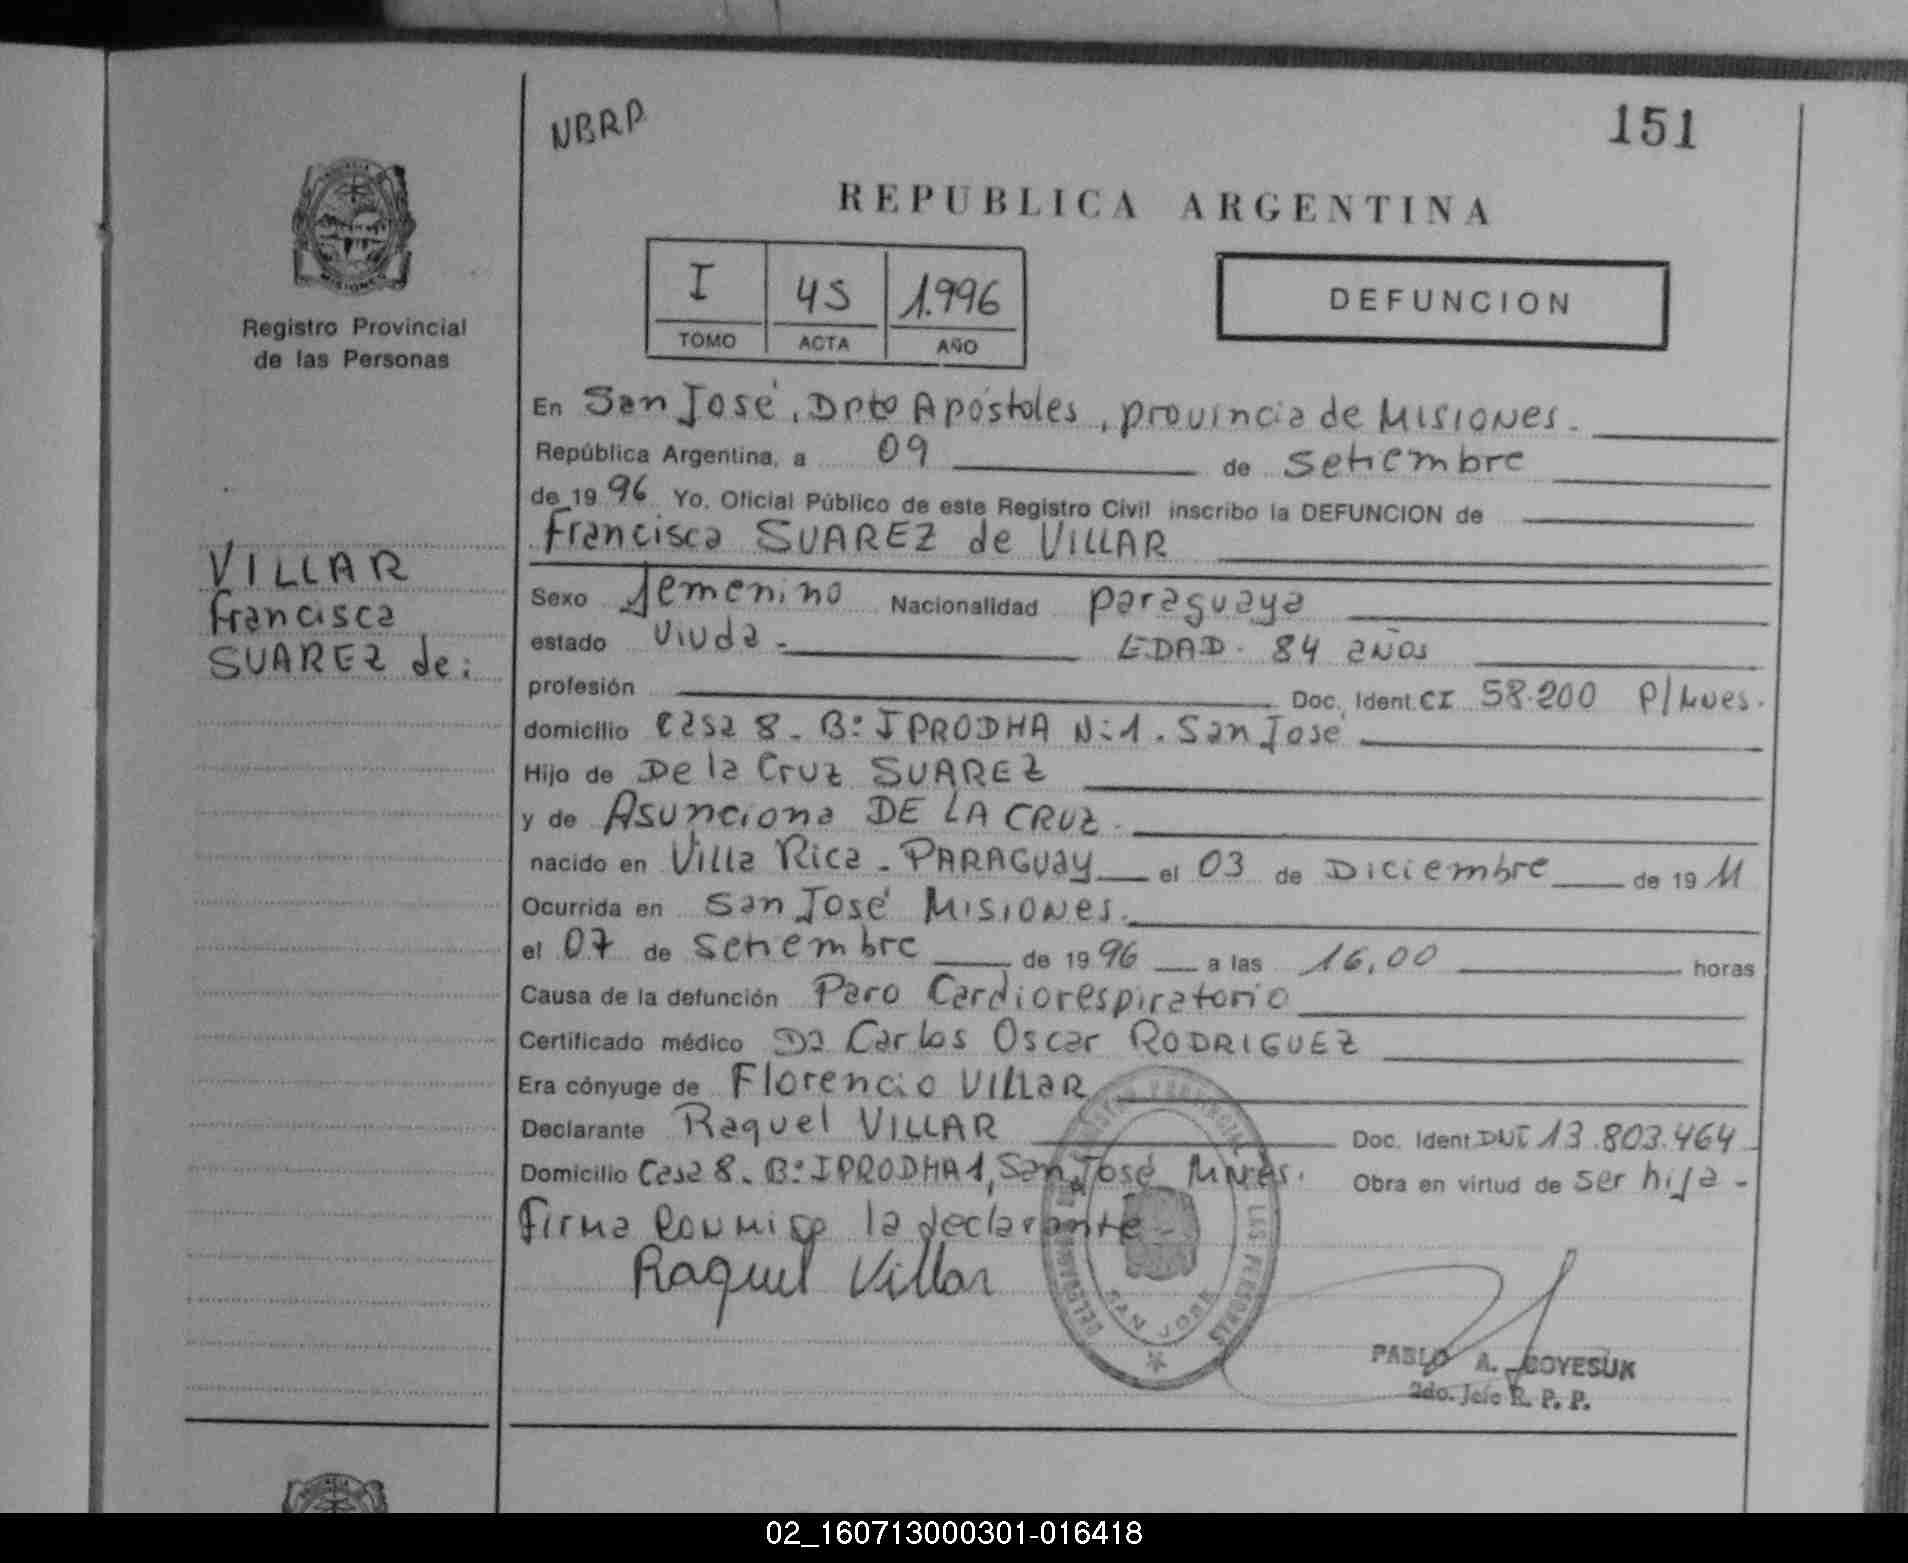 NBRP
151
REPUBLICA ARGENTINA
I 45 1.996
TOMO ACTA AÑO
DEFUNCION
Registro Provincial
de las Personas
VILLAR
Francisca
SUAREZ de:
En San José, Dpto Apóstoles, provincia de Misiones.
República Argentina, a 09 de Setiembre
de 19 96 Yo, Oficial Público de este Registro Civil inscribo la DEFUNCION de
Francisca SUAREZ de VILLAR
Sexo femenino Nacionalidad paraguaya
estado Viuda - EDAD. 84 años
profesión Doc. Ident. CI 58.200 P/Mnes.
domicilio Casa 8 - B: IPRODHA N:1. San José
Hijo de De la Cruz SUAREZ
y de Asunciona DE LA CRUZ
nacido en Villa Rica - PARAGUAY el 03 de Diciembre de 19 11
Ocurrida en San José Misiones.
el 07 de Setiembre de 19 96 a las 16,00 horas
Causa de la defunción Paro Cardiorespiratorio
Certificado médico Dr Carlos Oscar RODRIGUEZ
Era cónyuge de Florencio VILLAR
Declarante Raquel VILLAR Doc. Ident. DNI 13.803.464
Domicilio Casa 8 - B: IPRODHA 1, San José Mnes. Obra en virtud de ser hija -
Firma conmigo la declarante -
Raquel Villar
SAN JOSE
PABLO A.
2do. Jefe R. P. P.
02_160713000301-016418